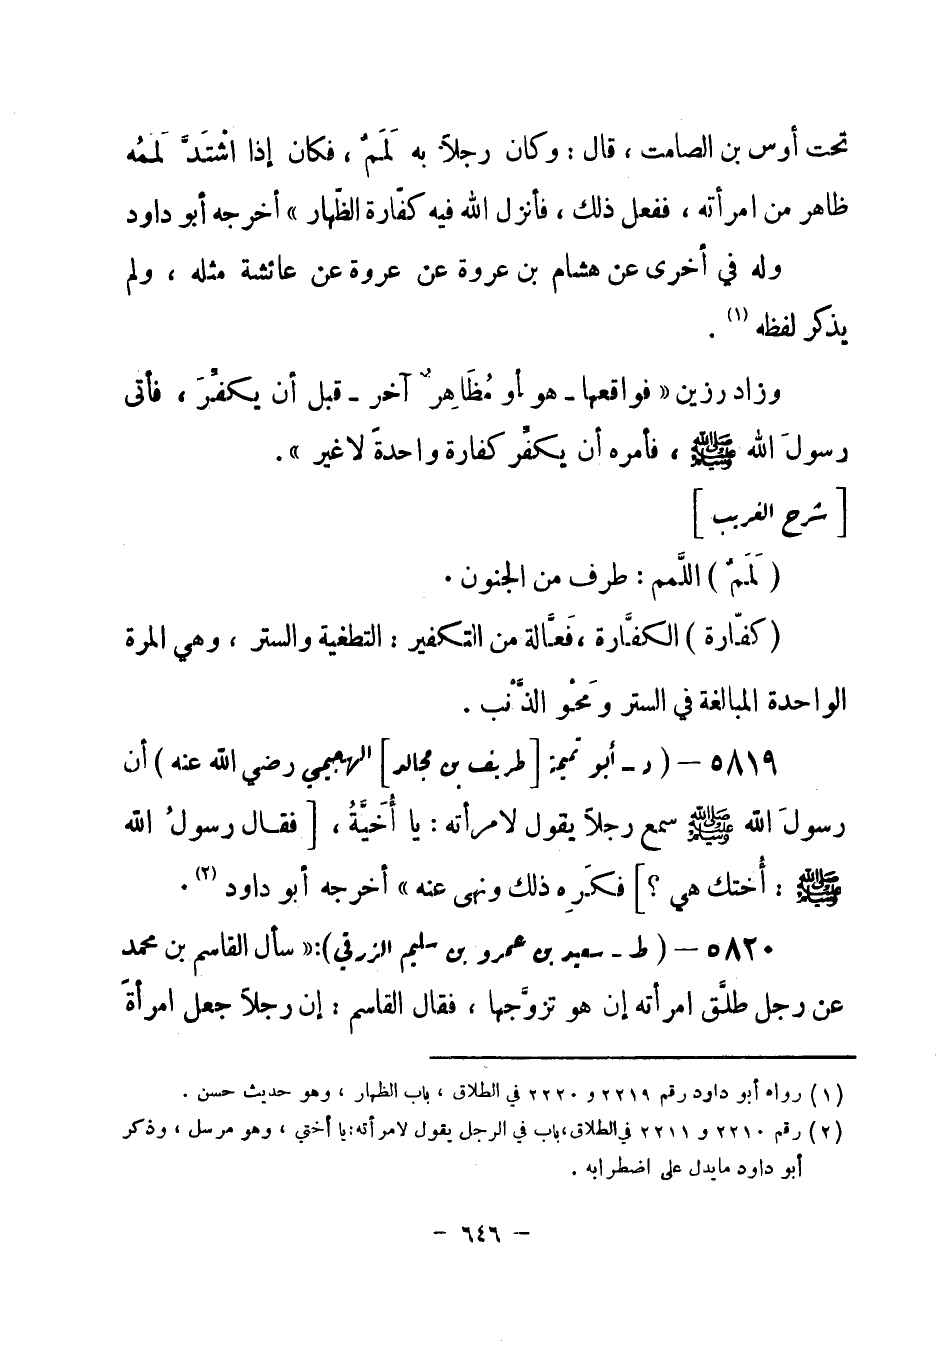 تحت أوس بن الصامت ، قال : وكان رجلاً به لَمَمٌ ، فكان إذا اشْتَدَّ لَمَمُه
ظاهر من امرأته ، ففعل ذلك ، فأنزل الله فيه كفّارة الظّهار » أخرجه أبو داود
وله في أخرى عن هشام بن عروة عن عروة عن عائشة مثله ، ولم
يذكر لفظه (١) .
وزاد رزين « فواقعها ـ هو أو مُظَاهِرٌ آخر ـ قبل أن يكفِّرَ ، فأتى
رسولَ الله ﷺ ، فأمره أن يكفِّر كفارة واحدةً لاغير » .
[ شرح الغريب ]
( لَمَمٌ ) اللَّمم : طرف من الجنون .
( كفّارة ) الكفَّارة ، فَعَّالة من التكفير : التطغية والستر ، وهي المرة
الواحدة المبالغة في الستر ومَحْو الذَّنْب .
٥٨١٩ – ( د ـ أبو تميمة [ طريف بن مجالد ] الهجيمي رضي الله عنه ) أن
رسولَ الله ﷺ سمع رجلاً يقول لامرأته : يا أُخَيَّةُ ، [ فقـال رسولُ الله
ﷺ : أُختك هي ؟ ] فكَرِه ذلك ونهى عنه » أخرجه أبو داود (٢) .
٥٨٢٠ – ( ط ـ سعيد بن عمرو بن سليم الزرقي ) : « سأل القاسم بن محمد
عن رجل طلَّق امرأته إن هو تزوَّجها ، فقال القاسم : إن رجلاً جعل امرأةً
(١) رواه أبو داود رقم ٢٢١٩ و ٢٢٢٠ في الطلاق ، باب الظهار ، وهو حديث حسن .
(٢) رقم ٢٢١٠ و ٢٢١١ في الطلاق ، باب في الرجل يقول لامرأته : يا أختي ، وهو مرسل ، وذكر
أبو داود مايدل على اضطرابه .
– ٦٤٦ –